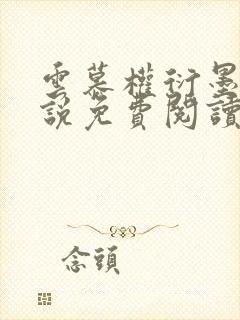 雲慕權衍墨
說免費閱讀
念頭